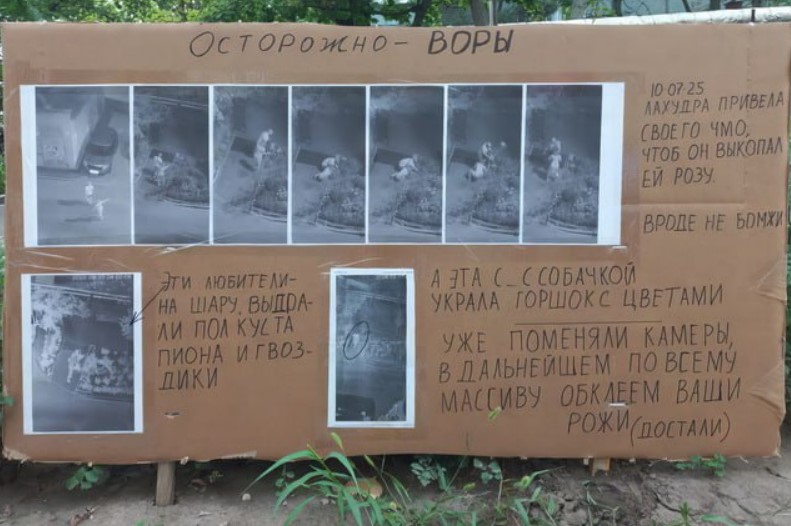 ОСТОРОЖНО - ВОРЫ
10.07.25
ЛАХУДРА ПРИВЕЛА
СВОЕГО ЧМО,
ЧТОБ ОН ВЫКОПАЛ
ЕЙ РОЗУ.
ВРОДЕ НЕ БОМЖИ
ЭТИ ЛЮБИТЕЛИ-
НА ШАРУ, ВЫДРА-
ЛИ ПОЛ КУСТА
ПИОНА И ГВОЗ-
ДИКИ
А ЭТА С_ С СОБАЧКОЙ
УКРАЛА ГОРШОК С ЦВЕТАМИ
УЖЕ ПОМЕНЯЛИ КАМЕРЫ,
В ДАЛЬНЕЙШЕМ ПО ВСЕМУ
МАССИВУ ОБКЛЕЕМ ВАШИ
РОЖИ (ДОСТАЛИ)